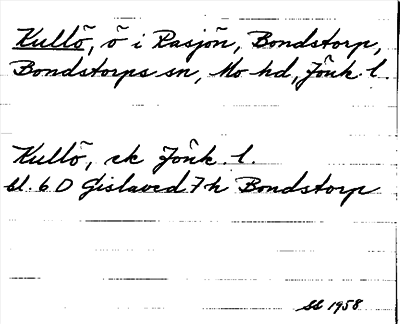 Kullö, ö i Rasjön, Bondstorp,
Bondstorps sn, Mo hd, Jönk. l.
Kullö, ek Jönk. l.
bl. 6 D Gislaved 7 h Bondstorp
1958